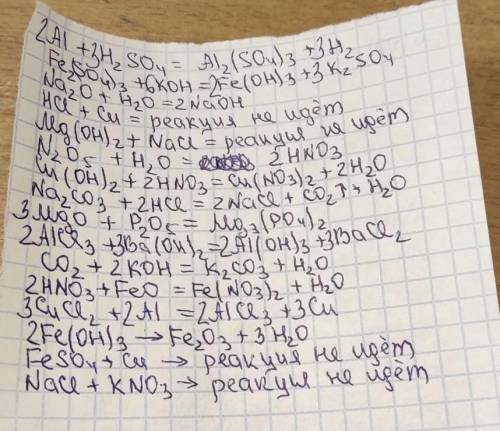 2Al + 3H2SO4 = Al2(SO4)3 + 3H2
Fe2(SO4)3 + 6KOH = 2Fe(OH)3 + 3K2SO4
Na2O + H2O = 2NaOH
HCl + Cu = реакция не идёт
Mg(OH)2 + NaCl = реакция не идёт
N2O5 + H2O = 2HNO3
Cu(OH)2 + 2HNO3 = Cu(NO3)2 + 2H2O
Na2CO3 + 2HCl = 2NaCl + CO2↑ + H2O
3MgO + P2O5 = Mg3(PO4)2
2AlCl3 + 3Ba(OH)2 = 2Al(OH)3 + 3BaCl2
CO2 + 2KOH = K2CO3 + H2O
2HNO3 + FeO = Fe(NO3)2 + H2O
3CuCl2 + 2Al = 2AlCl3 + 3Cu
2Fe(OH)3 → Fe2O3 + 3H2O
FeSO4 + Cu → реакция не идёт
NaCl + KNO3 → реакция не идёт